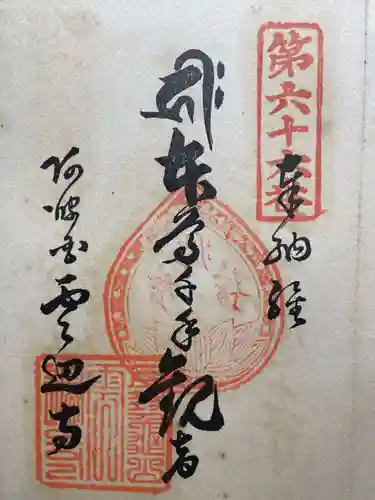 第六十六番
奉納経
本尊千手観音
阿波国雲辺寺